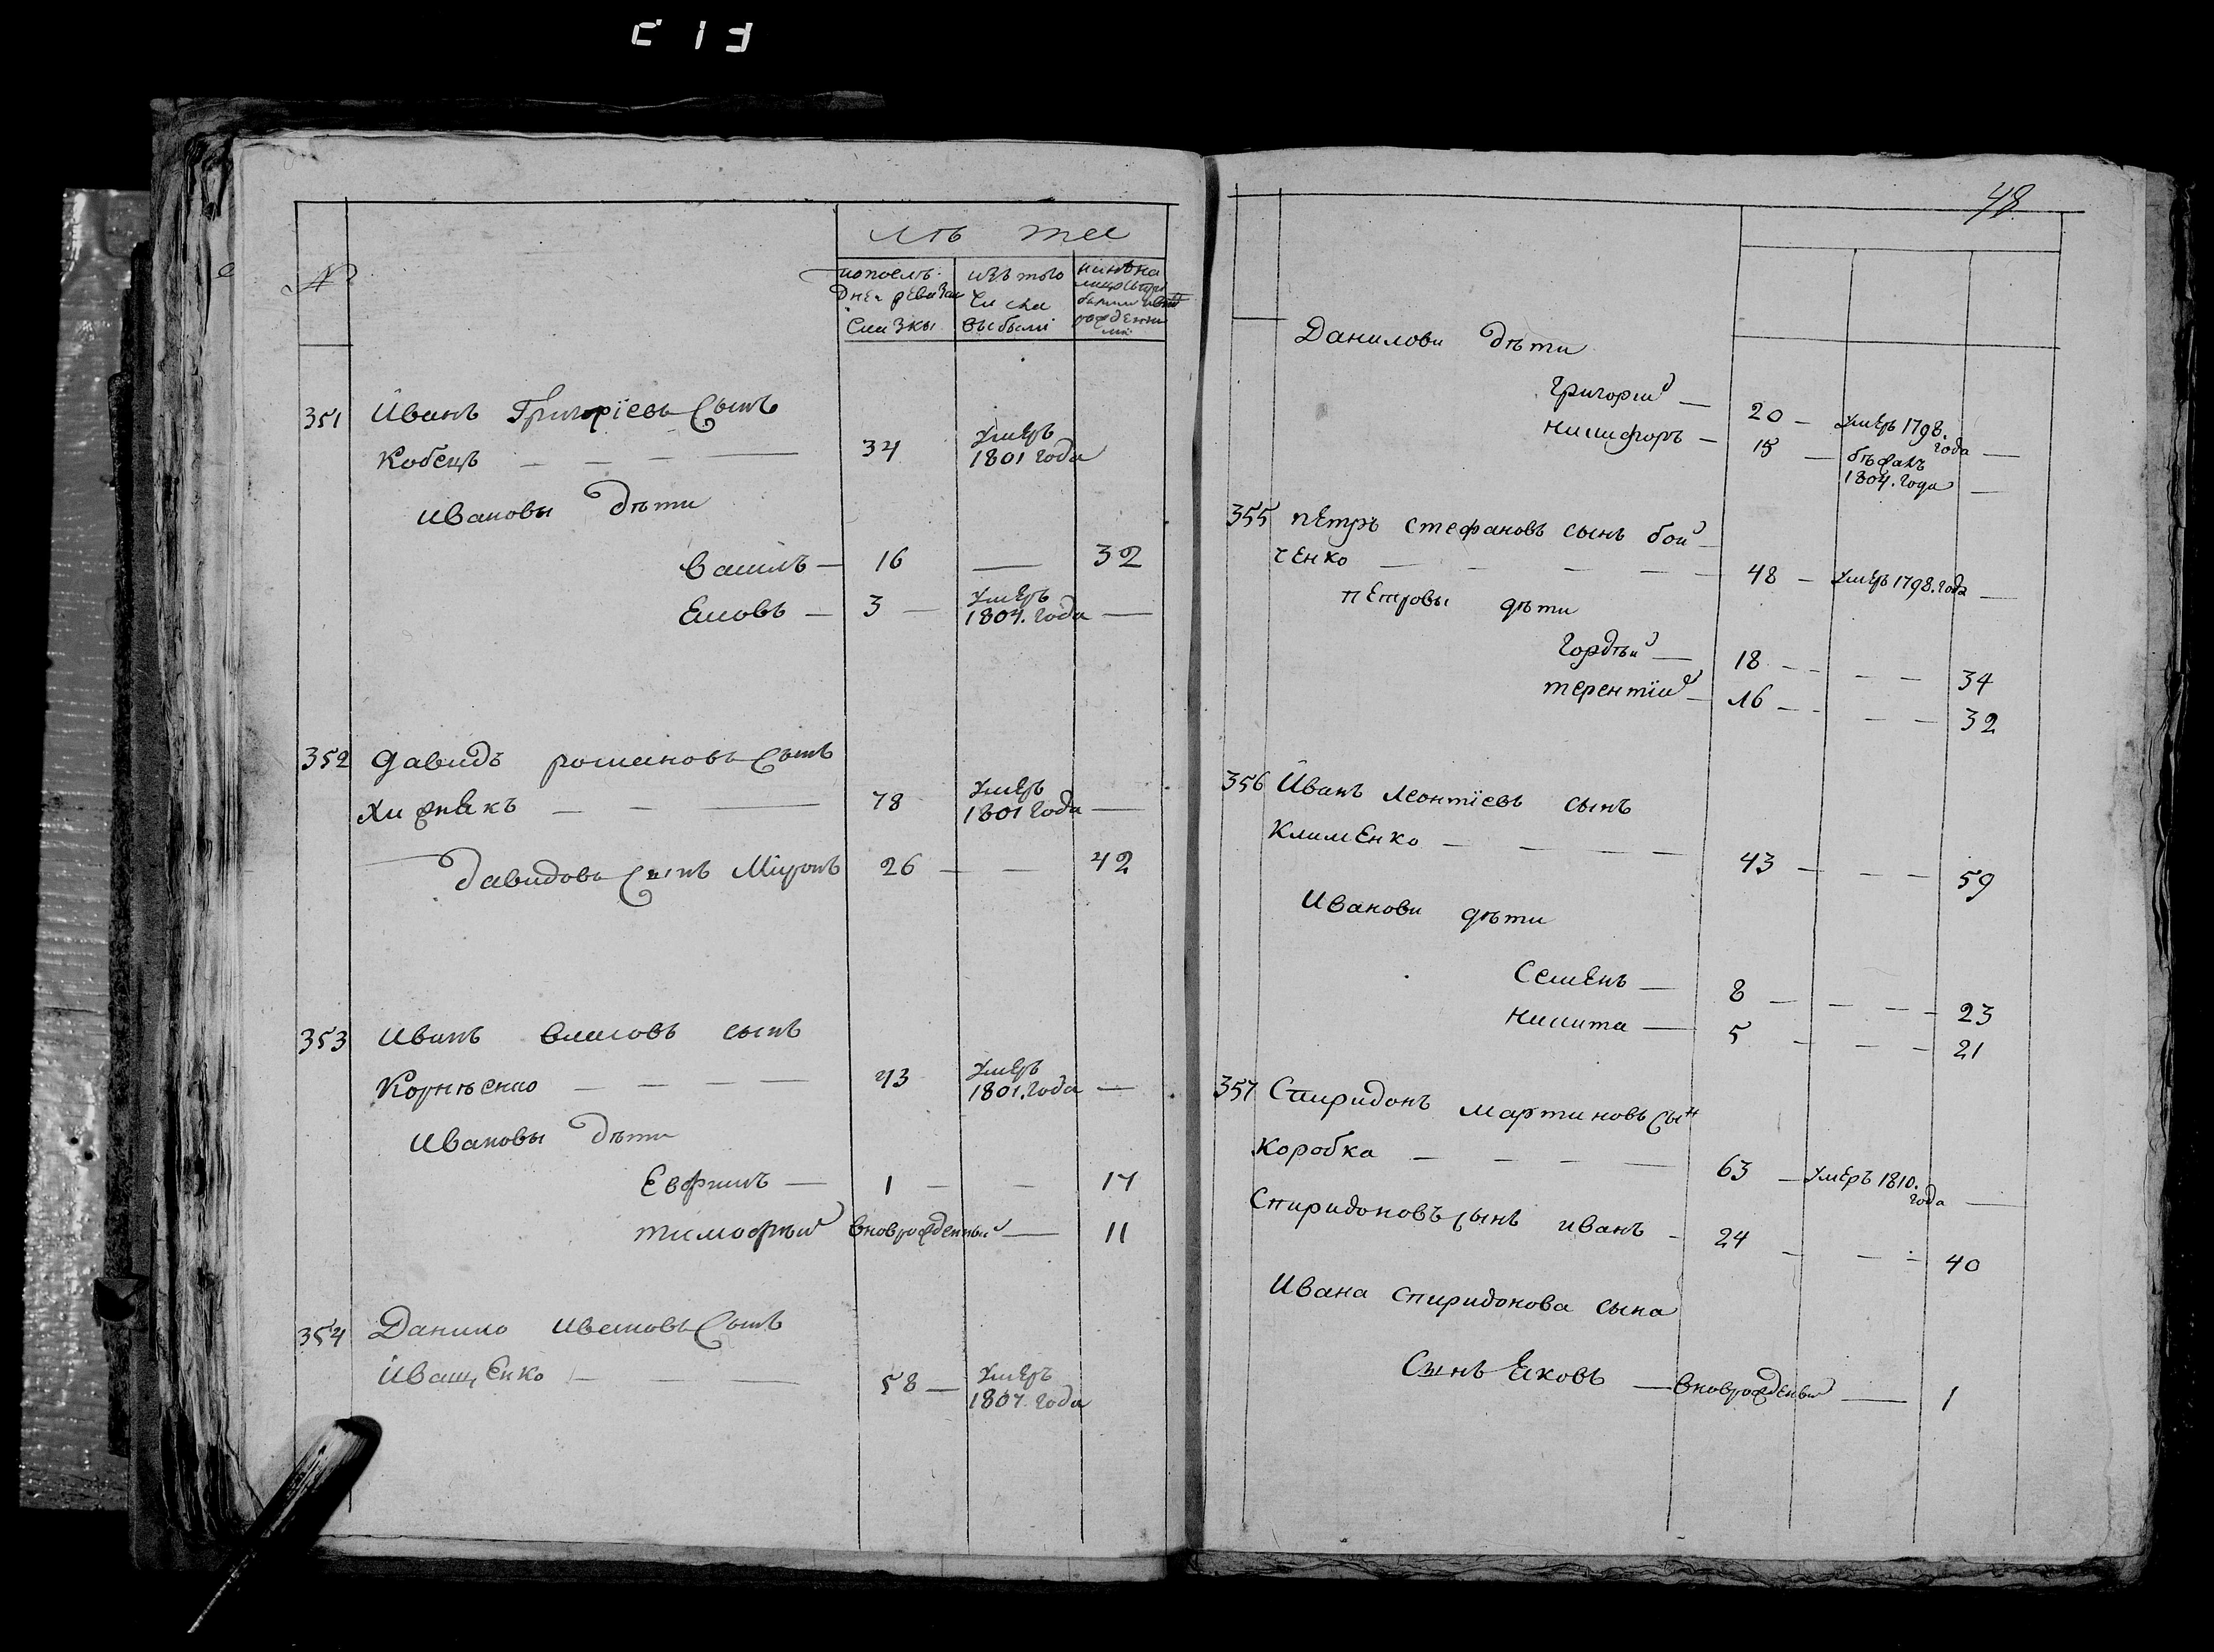 48
№
лѣ та
по послѣ
дней ревизи
сказки
изъ того
числа
выбыли
нинѣ на
рожденни
ми
351 Иванъ Григорїевъ сынъ
Кобецъ — — — — 34 умеръ
1801 года
Ивановы дѣти
Василъ — 16 — 32
Яковъ — 3 — умеръ
1804. года —
352 Давидъ романовъ сынъ
Хижнякъ — — — 78 умеръ
1801 года —
Давидовъ сынъ Миронъ 26 — — 42
353 Иванъ власовъ сынъ
Корнѣенко — — — — 43 умеръ
1801. года —
Ивановы дѣти
Евфимъ — 1 — — 17
тимофѣй вновръжденный — 11
354 Данило Ивановъ сынъ
Иващенко — — — 58 — умеръ
1807. года
Данилови дѣти
Григорий — 20 — умеръ 1798.
года —
никифоръ — 15 — бѣжалъ
1804. года —
355 петръ стефановъ сынъ бой
ченко — — — — — 48 — умеръ 1798. года —
петровы дѣти
Гордѣй — 18 — — — — 34
терентїй — 16 — — — — 32
356 Иванъ леонтїевъ сынъ
Клименко — — — — 43 — — — 59
Иванови дѣти
Семенъ — 8 — — — — 23
никита — 5 — — — 21
357 Спиридонъ мартиновъ сын
коробка — — — — 63 — умеръ 1810.
года —
Спиридоновъ сынъ иванъ — 24 — — — 40
Ивана спиридонова сына
Сынъ Яковъ — вноврожденый — 1